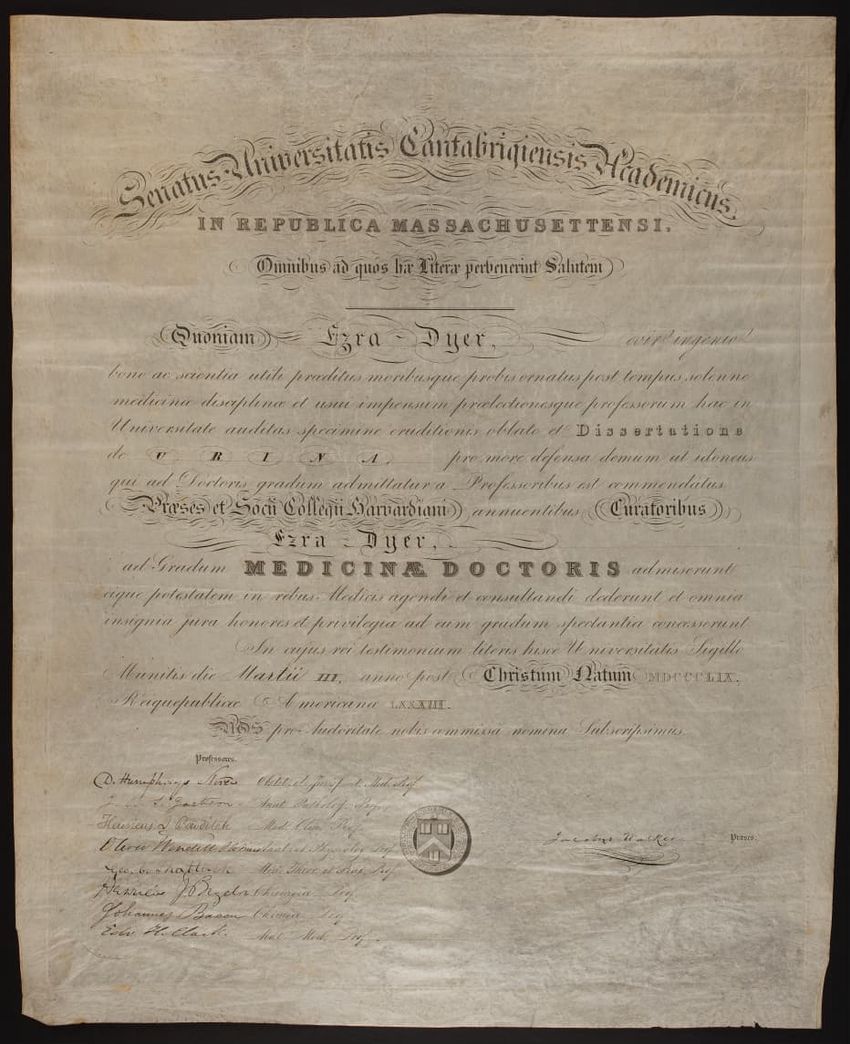 Senatus Universitatis Cantabrigiensis Academicus,
IN REPUBLICA MASSACHUSETTENSI,
Omnibus ad quos hæ Literæ pervenerint Salutem
Quoniam Ezra Dyer, vir ingenio
bono ac scientia utili præditus moribusque probis ornatus post tempus solenne
medicinæ disciplinæ et usui impensum prælectionesque professorum hac in
Universitate auditas specimine eruditionis oblato et Dissertatione
de URINA, pro more defensa demum ut idoneus
qui ad Doctoris gradum admittatur a Professoribus est commendatus
Præses et Socii Collegii Harvardiani annuentibus Curatoribus
Ezra Dyer,
ad Gradum MEDICINÆ DOCTORIS admiserunt
eique potestatem in rebus Medicis agendi et consultandi dederunt et omnia
insignia jura honores et privilegia ad eum gradum spectantia concesserunt
In cujus rei testimonium literis hisce Universitatis Sigillo
Munitis die Martii III, anno post Christum Natum MDCCCLIX,
Reique publicæ Americanæ LXXXIII.
NOS pro Autoritate nobis commissa nomina Subscripsimus.
Professores.
D. Humphreys Storer Obstet. et Jurisp. Med. Prof
J. B. S. Jackson Anat. Patholog. Prof
Henricus I. Bowditch Med. Clin. Prof
Oliver Wendell Holmes Anat. et Physiolog. Prof
Jacobus Walker Præses.
Henricus J. Bigelow Chirurgiæ Prof
Johannes Bacon Chimiæ Prof
Edv. H. Clarke Mat. Med. Prof.